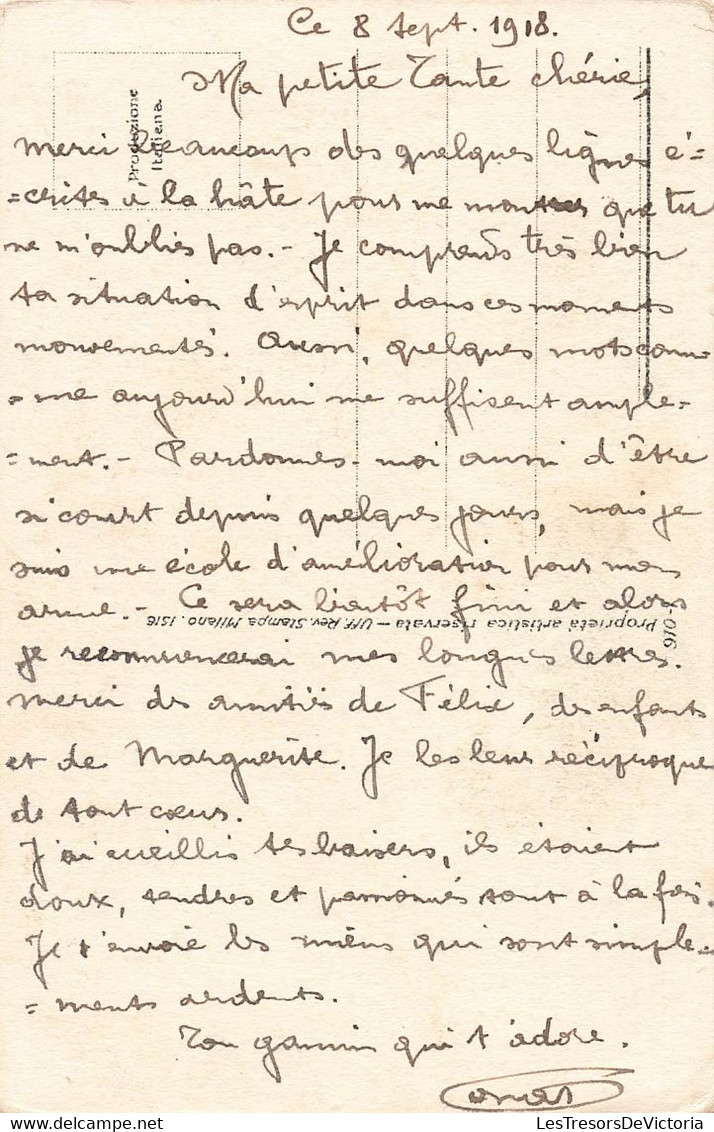 Ce 8 Sept. 1918.
Ma petite Tante chérie,
Merci beaucoup des quelques lignes é-
=crites à la hâte pour me montrer que tu
ne m'oublies pas. - Je comprends très bien
ta situation d'esprit dans ces moments
mouvementés. Aussi, quelques mots com-
=me aujourd'hui me suffisent ample=
=ment. - Pardonnes-moi aussi d'être
si court depuis quelques jours, mais je
suis une école d'amélioration pour mon
arme. - Ce sera bientôt fini et alors
je recommencerai mes longues lettres.
Merci des amitiés de Félix, des enfants
et de Marguerite. Je les leur réciproque
de tout cœur.
J'ai cueillis tes baisers, ils étaient
doux, tendres et passionnés tout à la fois.
Je t'envoie les miens qui sont simple=
=ments ardents.
Ton gamin qui t'adore.
Produzione
Italiana.
Proprietà artistica riservata - Uff. Rev. Stampa Milano. 1516
916
LesTresorsDeVictoria.com